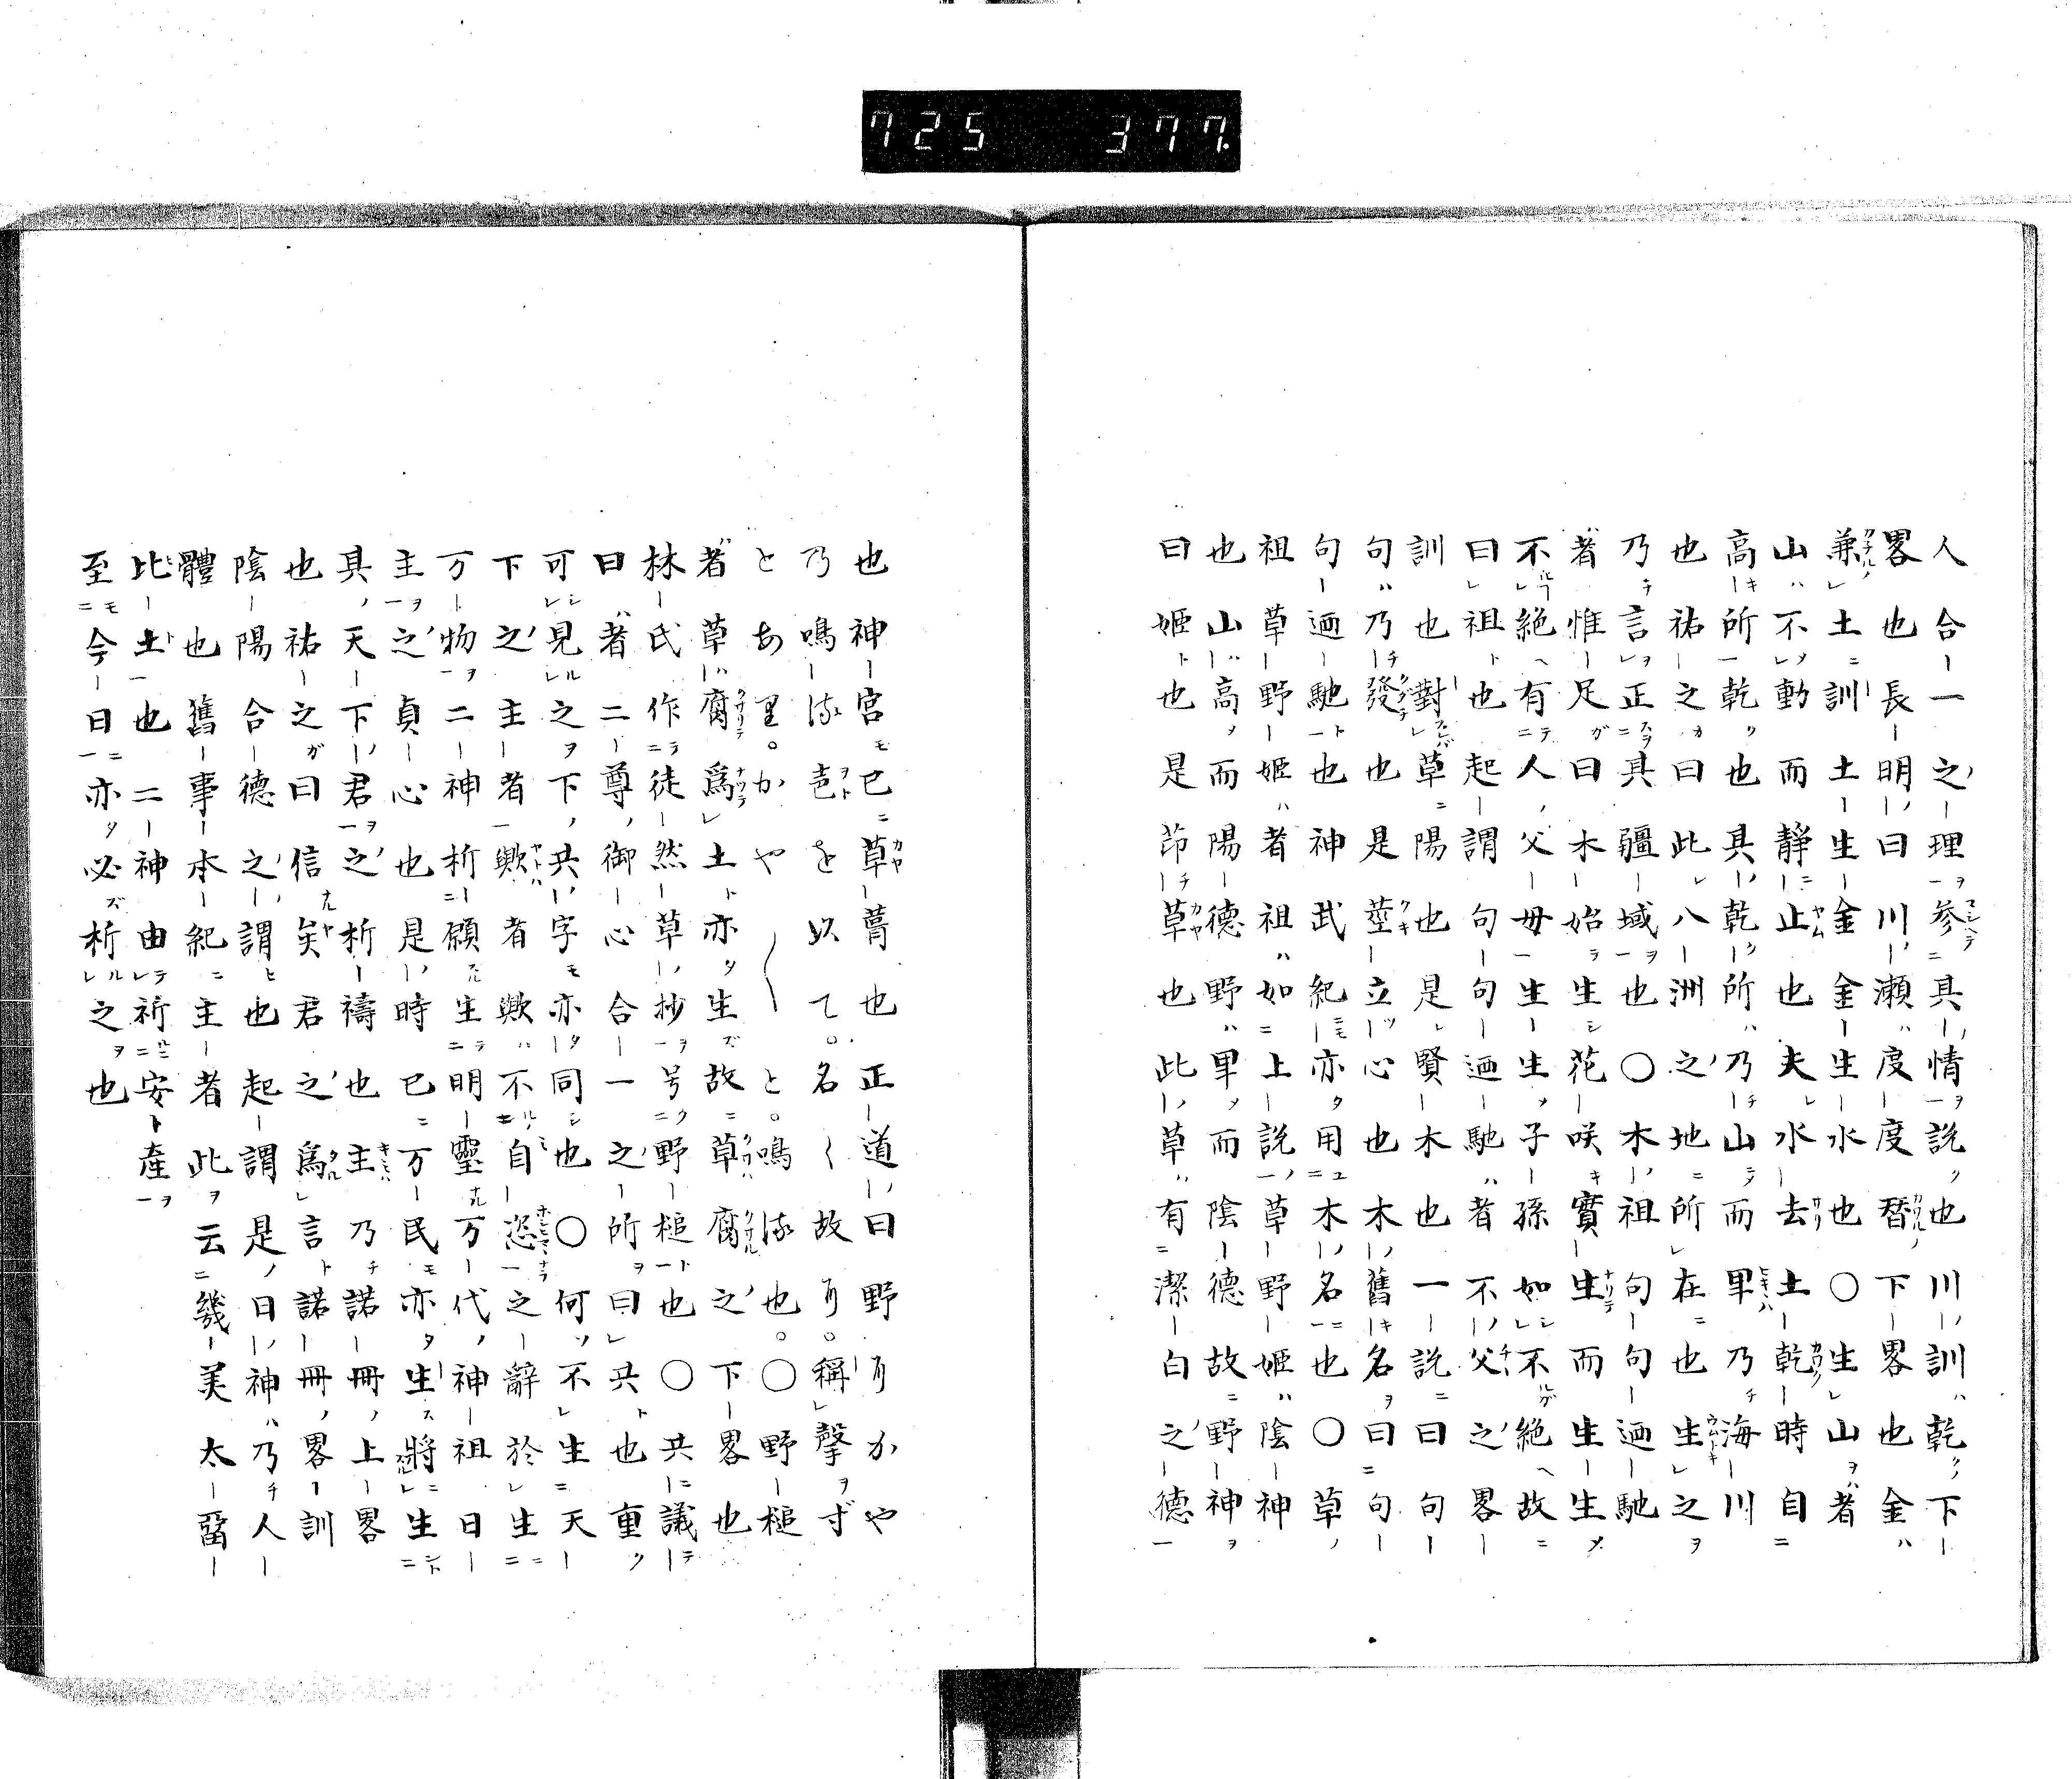 725 377.
人合一之理參具情說也川訓乾下
畧也長明曰川瀬度度替下畧也金
兼土訓土生金金生水也〇生山者
山不動而靜止也夫水去土乾時自
高所乾也具乾所乃山而卑乃海川
也祐之曰此八洲之地所在也生之
乃言正其疆域也〇木祖句句廼馳
者惟足曰木始生花咲實生而生生
不絶有人父母生生子孫如不絶故
曰祖也起謂句句廼馳者不父之畧
訓也對草陽也是賢木也一說曰句
句乃發也是莖立心也木舊名曰句
句廼馳也神武紀亦用木名也〇草
祖草野姫者祖如上說草野姫陰神
也山高而陽德野卑而陰德故野神
曰姬也是茆草也此草有潔白之德
也神宮已草葺也正道曰野りかや
乃鳴流をとを以て。名く故り。稱聲ず
とあ里。かや〱と。鳴流也。〇野槌
者草腐爲土亦生故草腐之下畧也
林氏作徒然草抄号野槌也〇共議
曰者二尊御心合一之所曰共也重
可見之下共字亦同也〇何不生天
下之主者歟者歟不自恣之辭於生
万物二神祈願生明靈万代神祖日
主之貞心也是時已万民亦生將生
具天下君之祈禱也主乃諾冊上畧
也祐之曰信矣君之爲言諾冊畧訓
陰陽合德之謂也起謂是日神乃人
體也舊事本紀主者此云幾美太畱
比土也二神由祈安產
至今日亦必祈之也